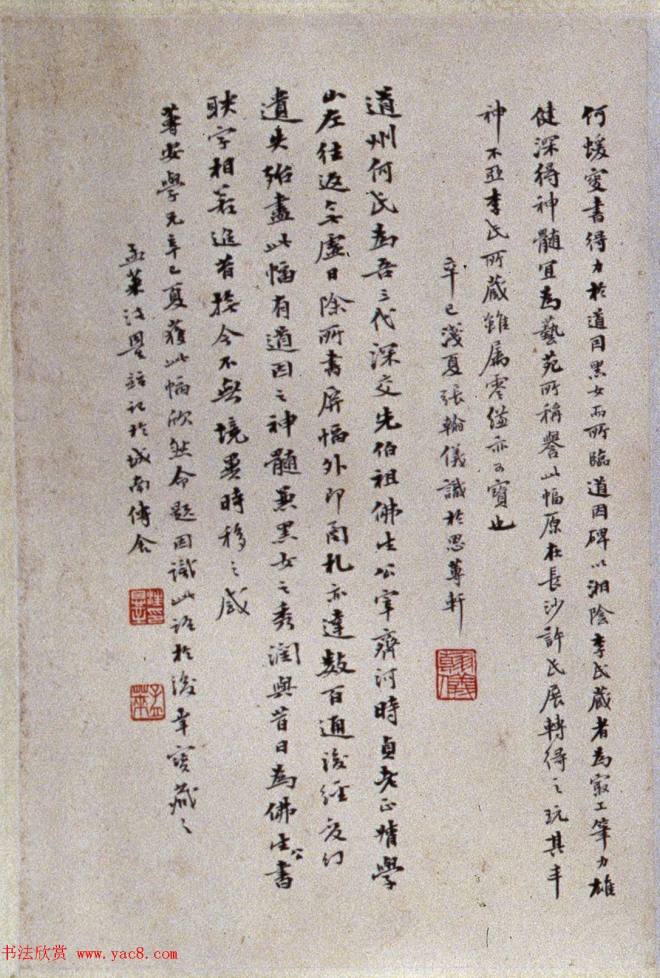 何蝯叟書得力於道因黑女而所臨道因碑以湘陰李氏藏者為冣工筆力雄
健深得神髓宜為藝苑所稱譽此幅原在長沙許氏展轉得之玩其丰
神不亞李氏所藏雖屬零縑亦可寶也
辛巳淺夏張翰儀識於思蓴軒
翰儀
道州何氏為吾三代深交先伯祖佛生公宰齊河時貞老正學
山左往返無虛日除所書屏幅外即函札亦達數百通後經幻
遺失殆盡此幅有道因之神髓兼黑女之秀潤與昔日為佛生公書
联字相若追昔撫今不無境異時移之感
蓴安學兄辛巳夏獲此幅欣然命題因識此語於後幸寶藏之
孟萊汪記於城南傅舍
孟萊
书法欣赏 www.yac8.com